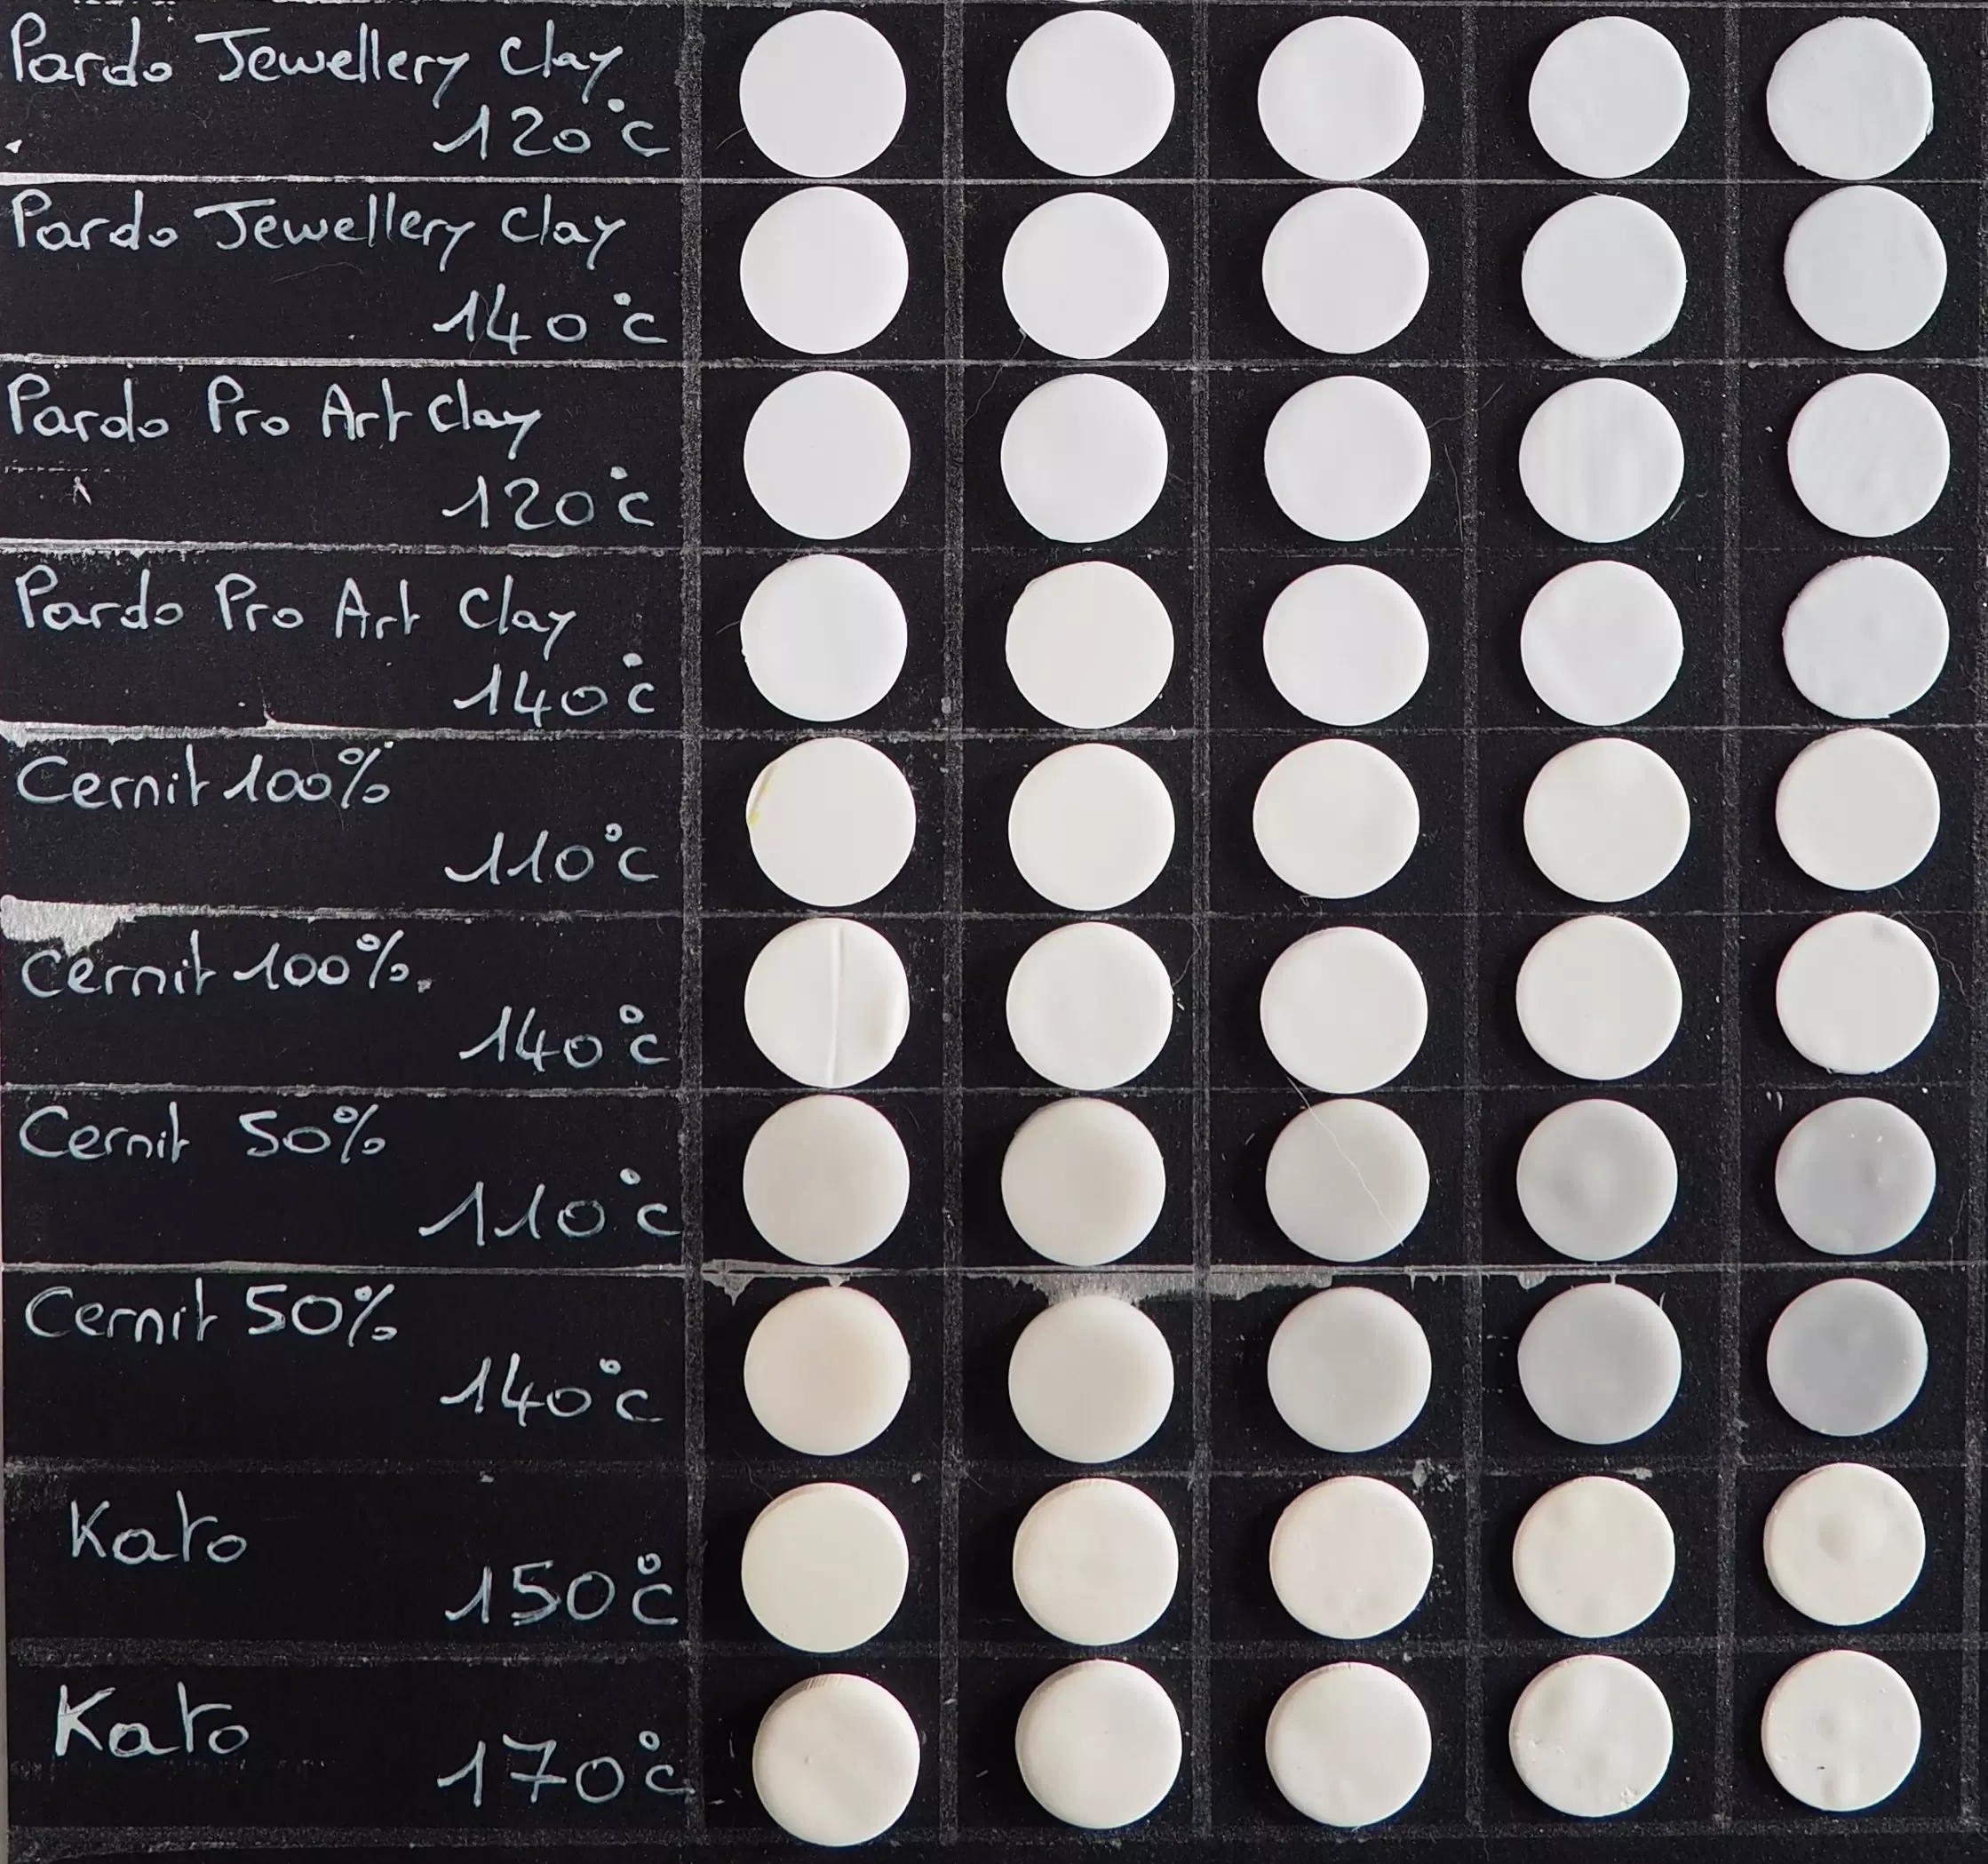 Pardo Jewellery Clay
120°c
Pardo Jewellery Clay
140°c
Pardo Pro Art Clay
120°c
Pardo Pro Art Clay
140°c
Cernit 100%
110°c
Cernit 100%.
140°c
Cernit 50%
110°c
Cernit 50%
140°c
Kato
150°c
Kato
170°c